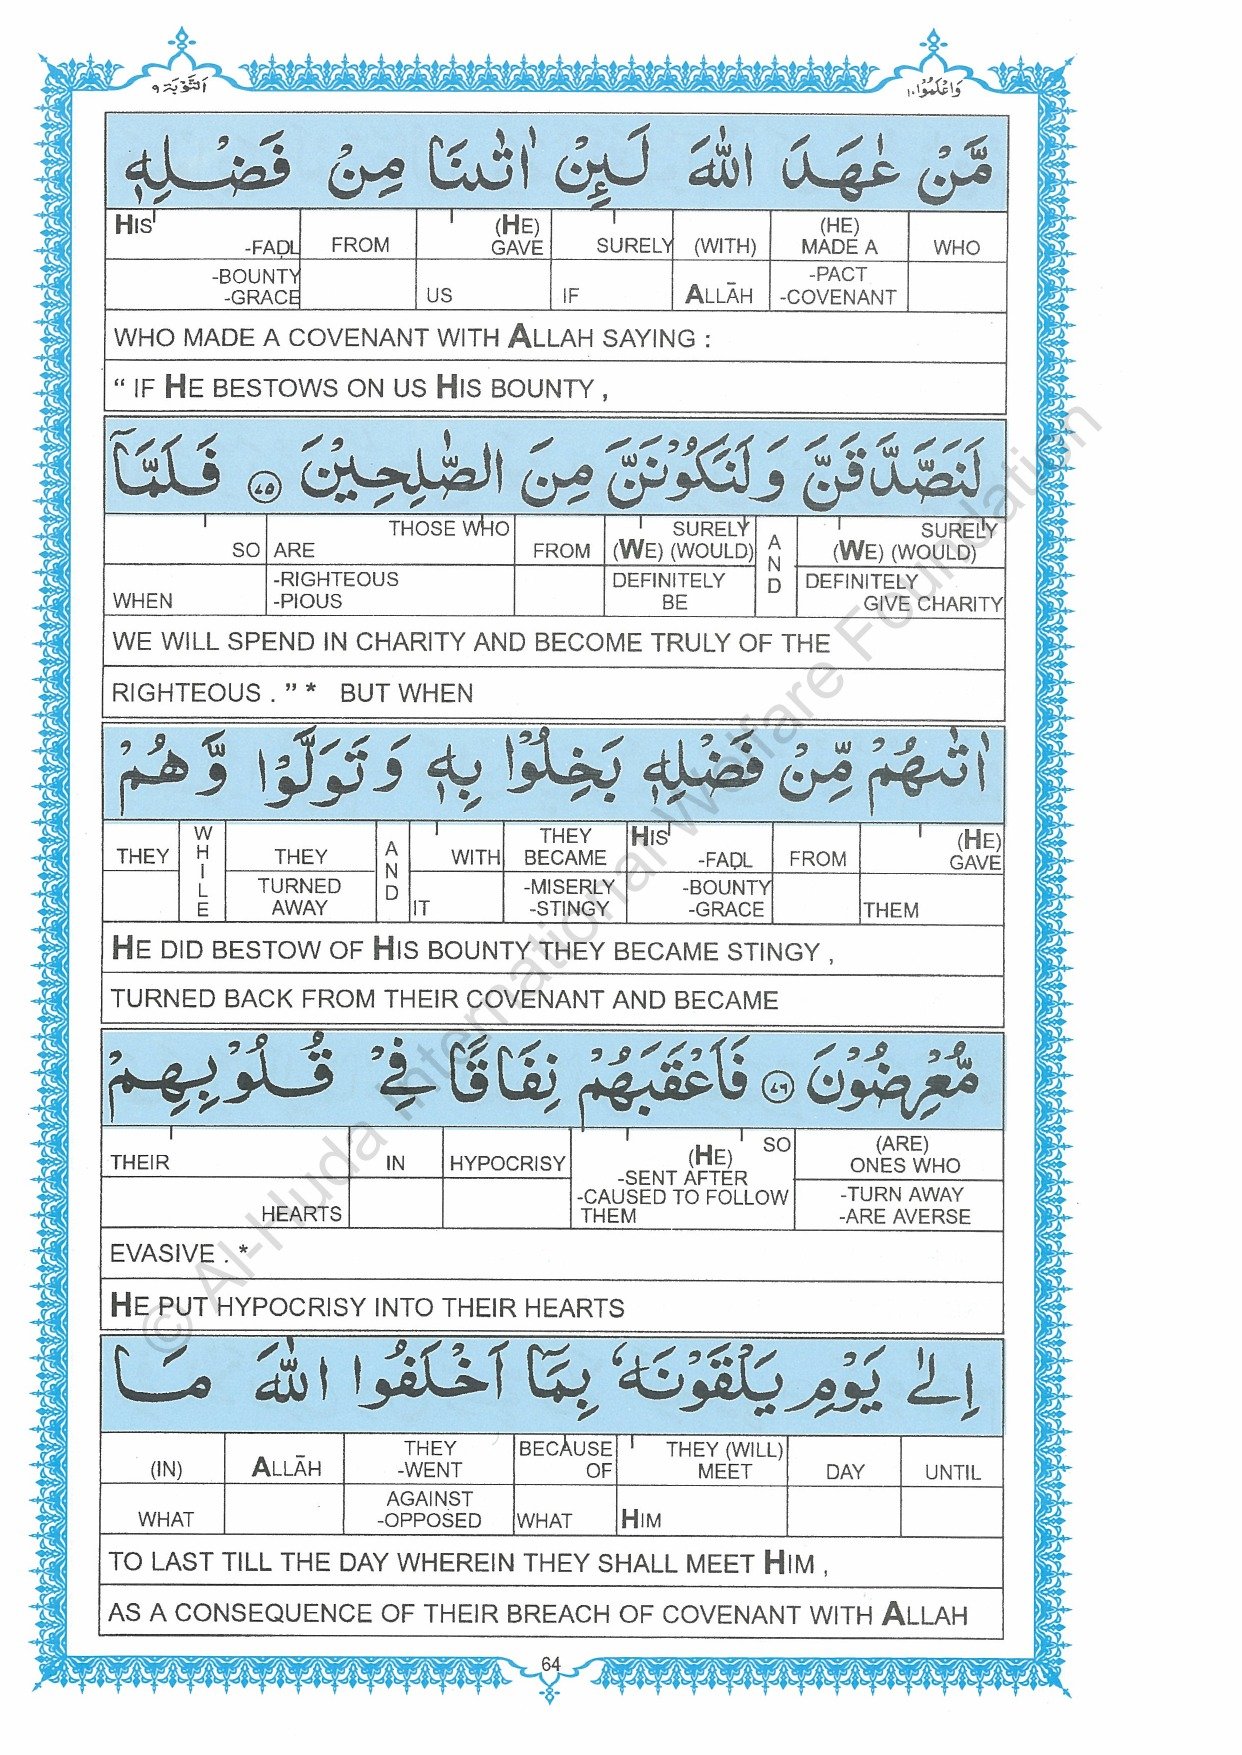 اَلتَّوْبَة ٩
وَاعْلَمُوْا ١٠
مَّنْ عٰهَدَ اللّٰهَ لَىِٕنْ اٰتٰىنَا مِنْ فَضْلِهٖ
HIS -FAḌL FROM (HE) GAVE SURELY (WITH) (HE) MADE A WHO
-BOUNTY -GRACE US IF ALLĀH -PACT -COVENANT
WHO MADE A COVENANT WITH ALLAH SAYING :
“ IF HE BESTOWS ON US HIS BOUNTY ,
لَنَصَّدَّقَنَّ وَلَنَكُوْنَنَّ مِنَ الصّٰلِحِيْنَ ٧٥ فَلَمَّآ
SO THOSE WHO ARE FROM SURELY (WE) (WOULD) AND SURELY (WE) (WOULD)
WHEN -RIGHTEOUS -PIOUS DEFINITELY BE DEFINITELY GIVE CHARITY
WE WILL SPEND IN CHARITY AND BECOME TRULY OF THE
RIGHTEOUS . ” * BUT WHEN
اٰتٰىهُمْ مِّنْ فَضْلِهٖ بَخِلُوْا بِهٖ وَتَوَلَّوْا وَّهُمْ
THEY WHILE THEY AND WITH THEY BECAME HIS -FAḌL FROM (HE) GAVE
TURNED AWAY IT -MISERLY -STINGY -BOUNTY -GRACE THEM
HE DID BESTOW OF HIS BOUNTY THEY BECAME STINGY ,
TURNED BACK FROM THEIR COVENANT AND BECAME
مُّعْرِضُوْنَ ٧٦ فَاَعْقَبَهُمْ نِفَاقًا فِيْ قُلُوْبِهِمْ
THEIR IN HYPOCRISY SO (HE) -SENT AFTER -CAUSED TO FOLLOW THEM (ARE) ONES WHO
HEARTS -TURN AWAY -ARE AVERSE
EVASIVE . *
HE PUT HYPOCRISY INTO THEIR HEARTS
اِلٰى يَوْمِ يَلْقَوْنَهٗ بِمَآ اَخْلَفُوا اللّٰهَ مَا
(IN) ALLĀH THEY -WENT BECAUSE OF THEY (WILL) MEET DAY UNTIL
WHAT AGAINST -OPPOSED WHAT HIM
TO LAST TILL THE DAY WHEREIN THEY SHALL MEET HIM ,
AS A CONSEQUENCE OF THEIR BREACH OF COVENANT WITH ALLAH
64
© Al-Huda International Welfare Foundation